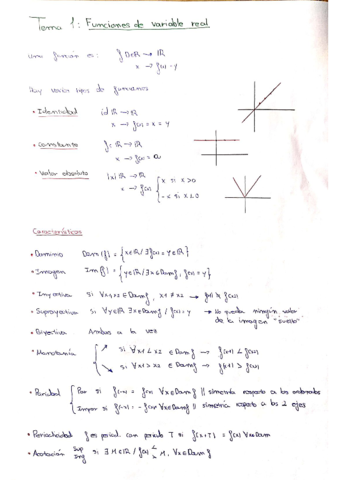 Tema 1: Funciones de variable real
Una función es: f: D⊂ℝ → ℝ
x → f(x) = y
Hay varios tipos de funciones
• Identidad id: ℝ → ℝ
x → f(x) = x = y
• Constante f: ℝ → ℝ
x → f(x) = a
• Valor absoluto |x|: ℝ → ℝ
x → f(x) { x si x>0
-x si x<0
Características
• Dominio Dom(f) = {x∈ℝ / ∃ f(x) = y∈ℝ}
• Imagen Im(f) = {y∈ℝ / ∃ x∈Domf, f(x) = y}
• Inyectiva si ∀x1,x2 ∈ Domf, x1 ≠ x2 → f(x1) ≠ f(x2)
• Suprayectiva si ∀y∈ℝ ∃x∈Domf / f(x) = y → No queda ningún valor
de la imagen "suelto"
• Biyectiva Ambas a la vez
• Monotonía { ↗ si ∀x1 < x2 ∈ Domf → f(x1) < f(x2)
↘ si ∀x1 > x2 ∈ Domf → f(x1) > f(x2)
• Paridad { Par si f(-x) = f(x) ∀x∈Domf // simetría respecto a las ordenadas
Impar si f(-x) = -f(x) ∀x∈Domf // simetría respecto a los 2 ejes
• Periodicidad f es period. con periodo T si f(x+T) = f(x) ∀x∈Dom
• Acotación Sup
Inf si ∃ M∈ℝ / f(x) ≤ ≥ M, ∀x∈Domf